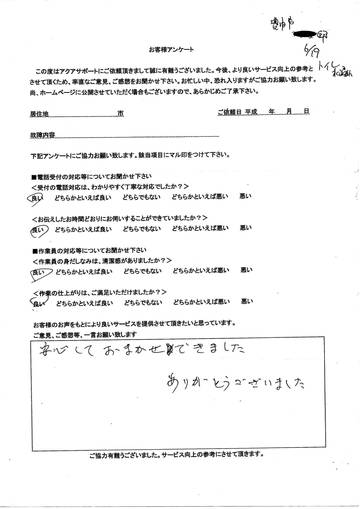 豊中市
6/19
トイレ
お客様アンケート
この度はアクアサポートにご依頼頂きまして誠に有難うございました。今後、より良いサービス向上の参考と
させて頂くため、率直なご意見、ご感想をお聞かせ下さい。お忙しい中、恐れ入りますがご協力お願い致します。
尚、ホームページに公開させていただく場合もございますので、あらかじめご了承下さい。
居住地 市 ご依頼日 平成 年 月 日
故障内容
下記アンケートにご協力お願い致します。該当項目にマル印をつけて下さい。
■電話受付の対応等についてお聞かせ下さい
<受付の電話対応は、わかりやすく丁寧な対応でしたか?>
良い どちらかといえば良い どちらでもない どちらかといえば悪い 悪い
<お伝えしたお時間どおりにお伺いすることができていましたか?>
良い どちらかといえば良い どちらでもない どちらかといえば悪い 悪い
■作業員の対応等についてお聞かせ下さい
<作業員の身だしなみは、清潔感がありましたか?>
良い どちらかといえば良い どちらでもない どちらかといえば悪い 悪い
<作業の仕上がりは、ご満足いただけましたか?>
良い どちらかといえば良い どちらでもない どちらかといえば悪い 悪い
お客様のお声をもとにより良いサービスを提供させて頂きたいと思っています。
ご意見、ご感想等、一言お願い致します
安心しておまかせできました
ありがとうございました
ご協力有難うございました。サービス向上の参考にさせて頂きます。